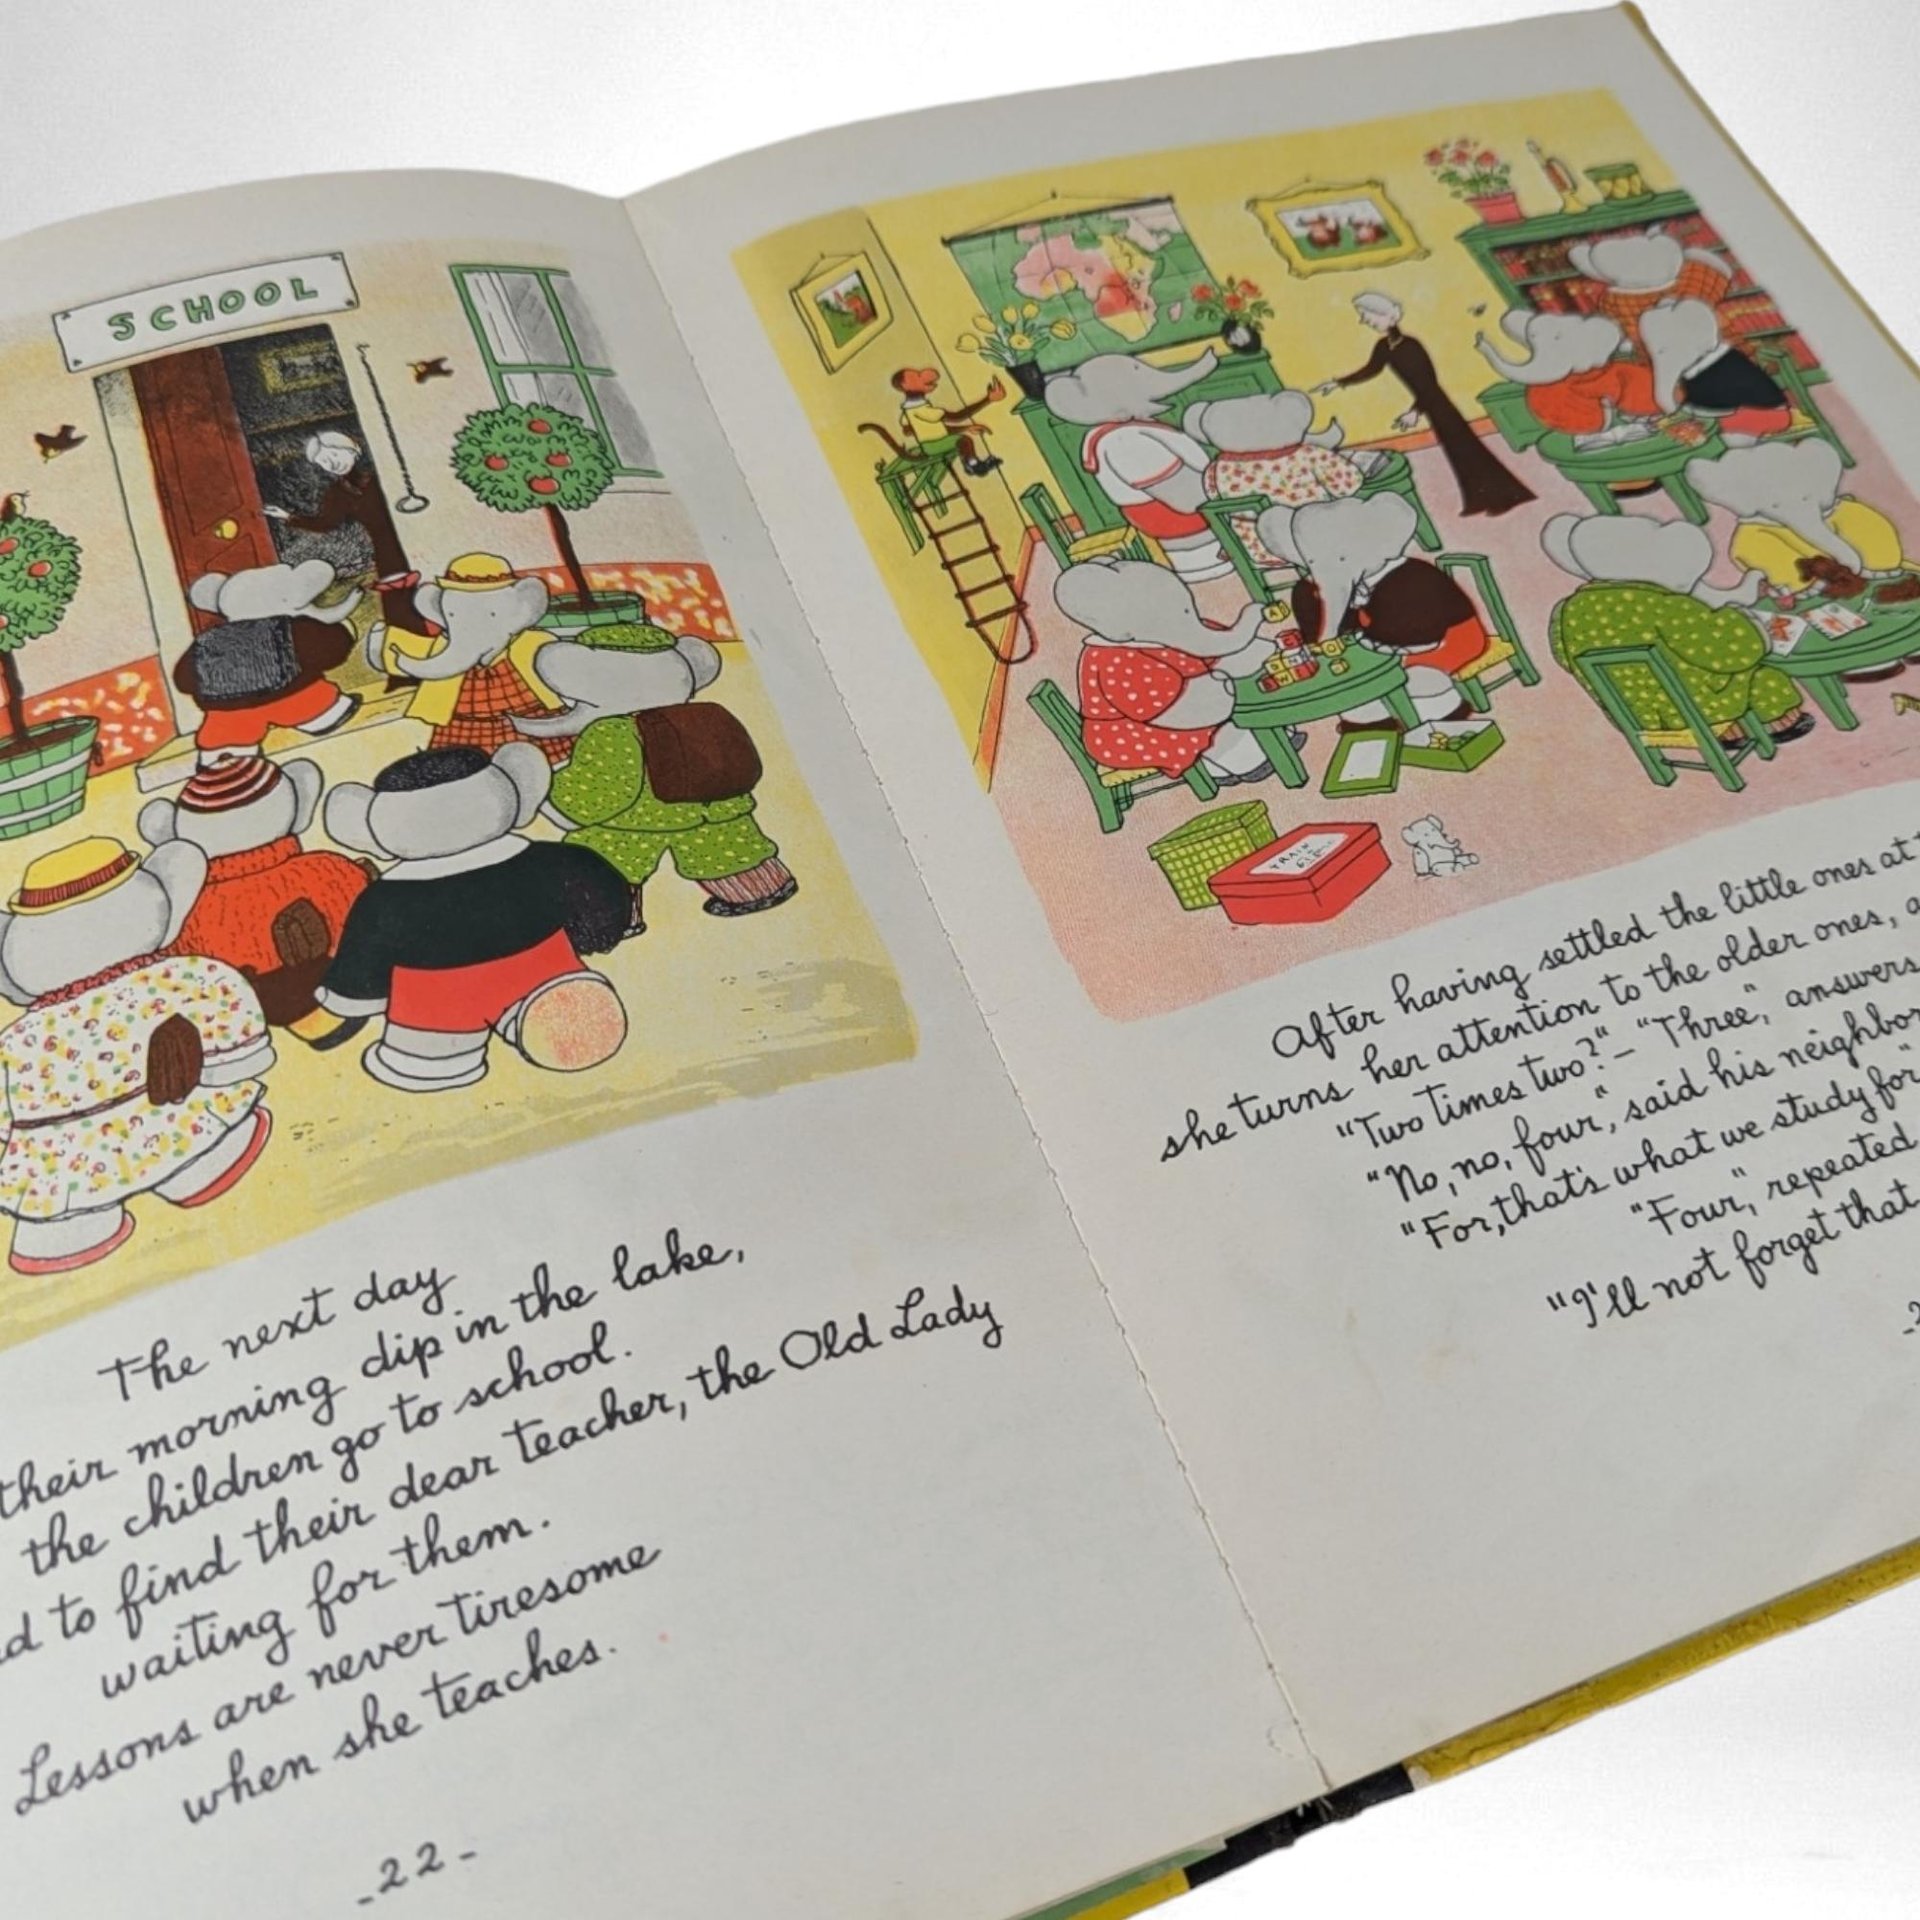 SCHOOL
The next day
their morning dip in the lake,
the children go to school.
to find their dear teacher, the Old Lady
waiting for them.
Lessons are never tiresome
when she teaches.
-22-
TRAIN
After having settled the little ones at
she turns her attention to the older ones,
"Two times two?" - "Three", answers
"No, no, four", said his neighbor
"For, that's what we study for"
"Four", repeated
"I'll not forget that